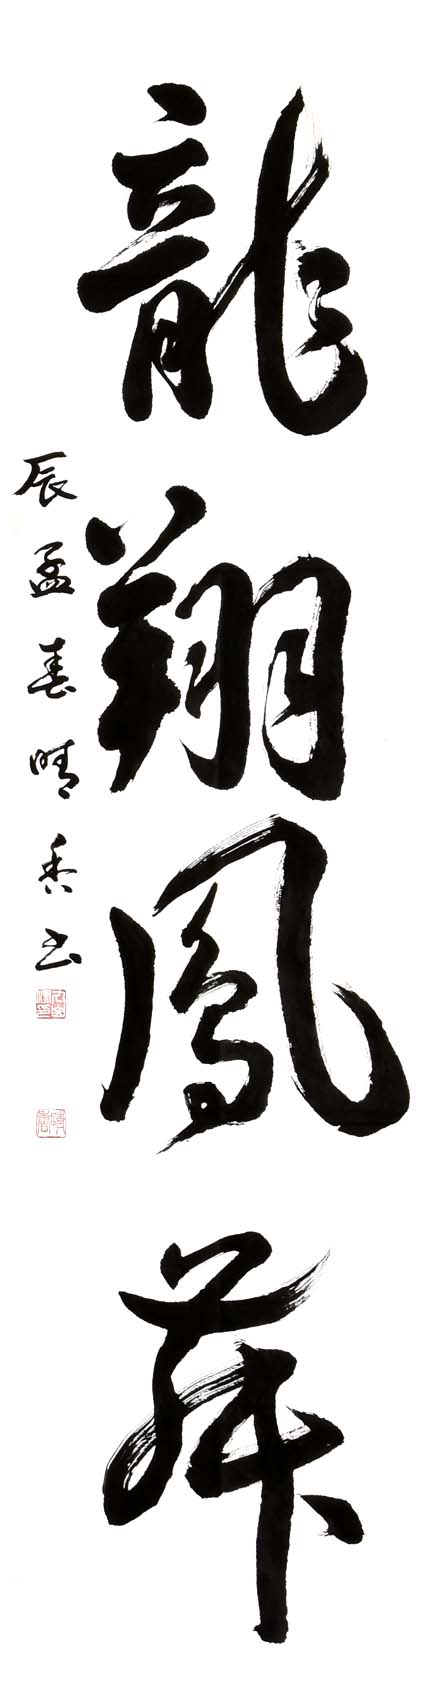 龍翔鳳舞
辰孟春晴香书